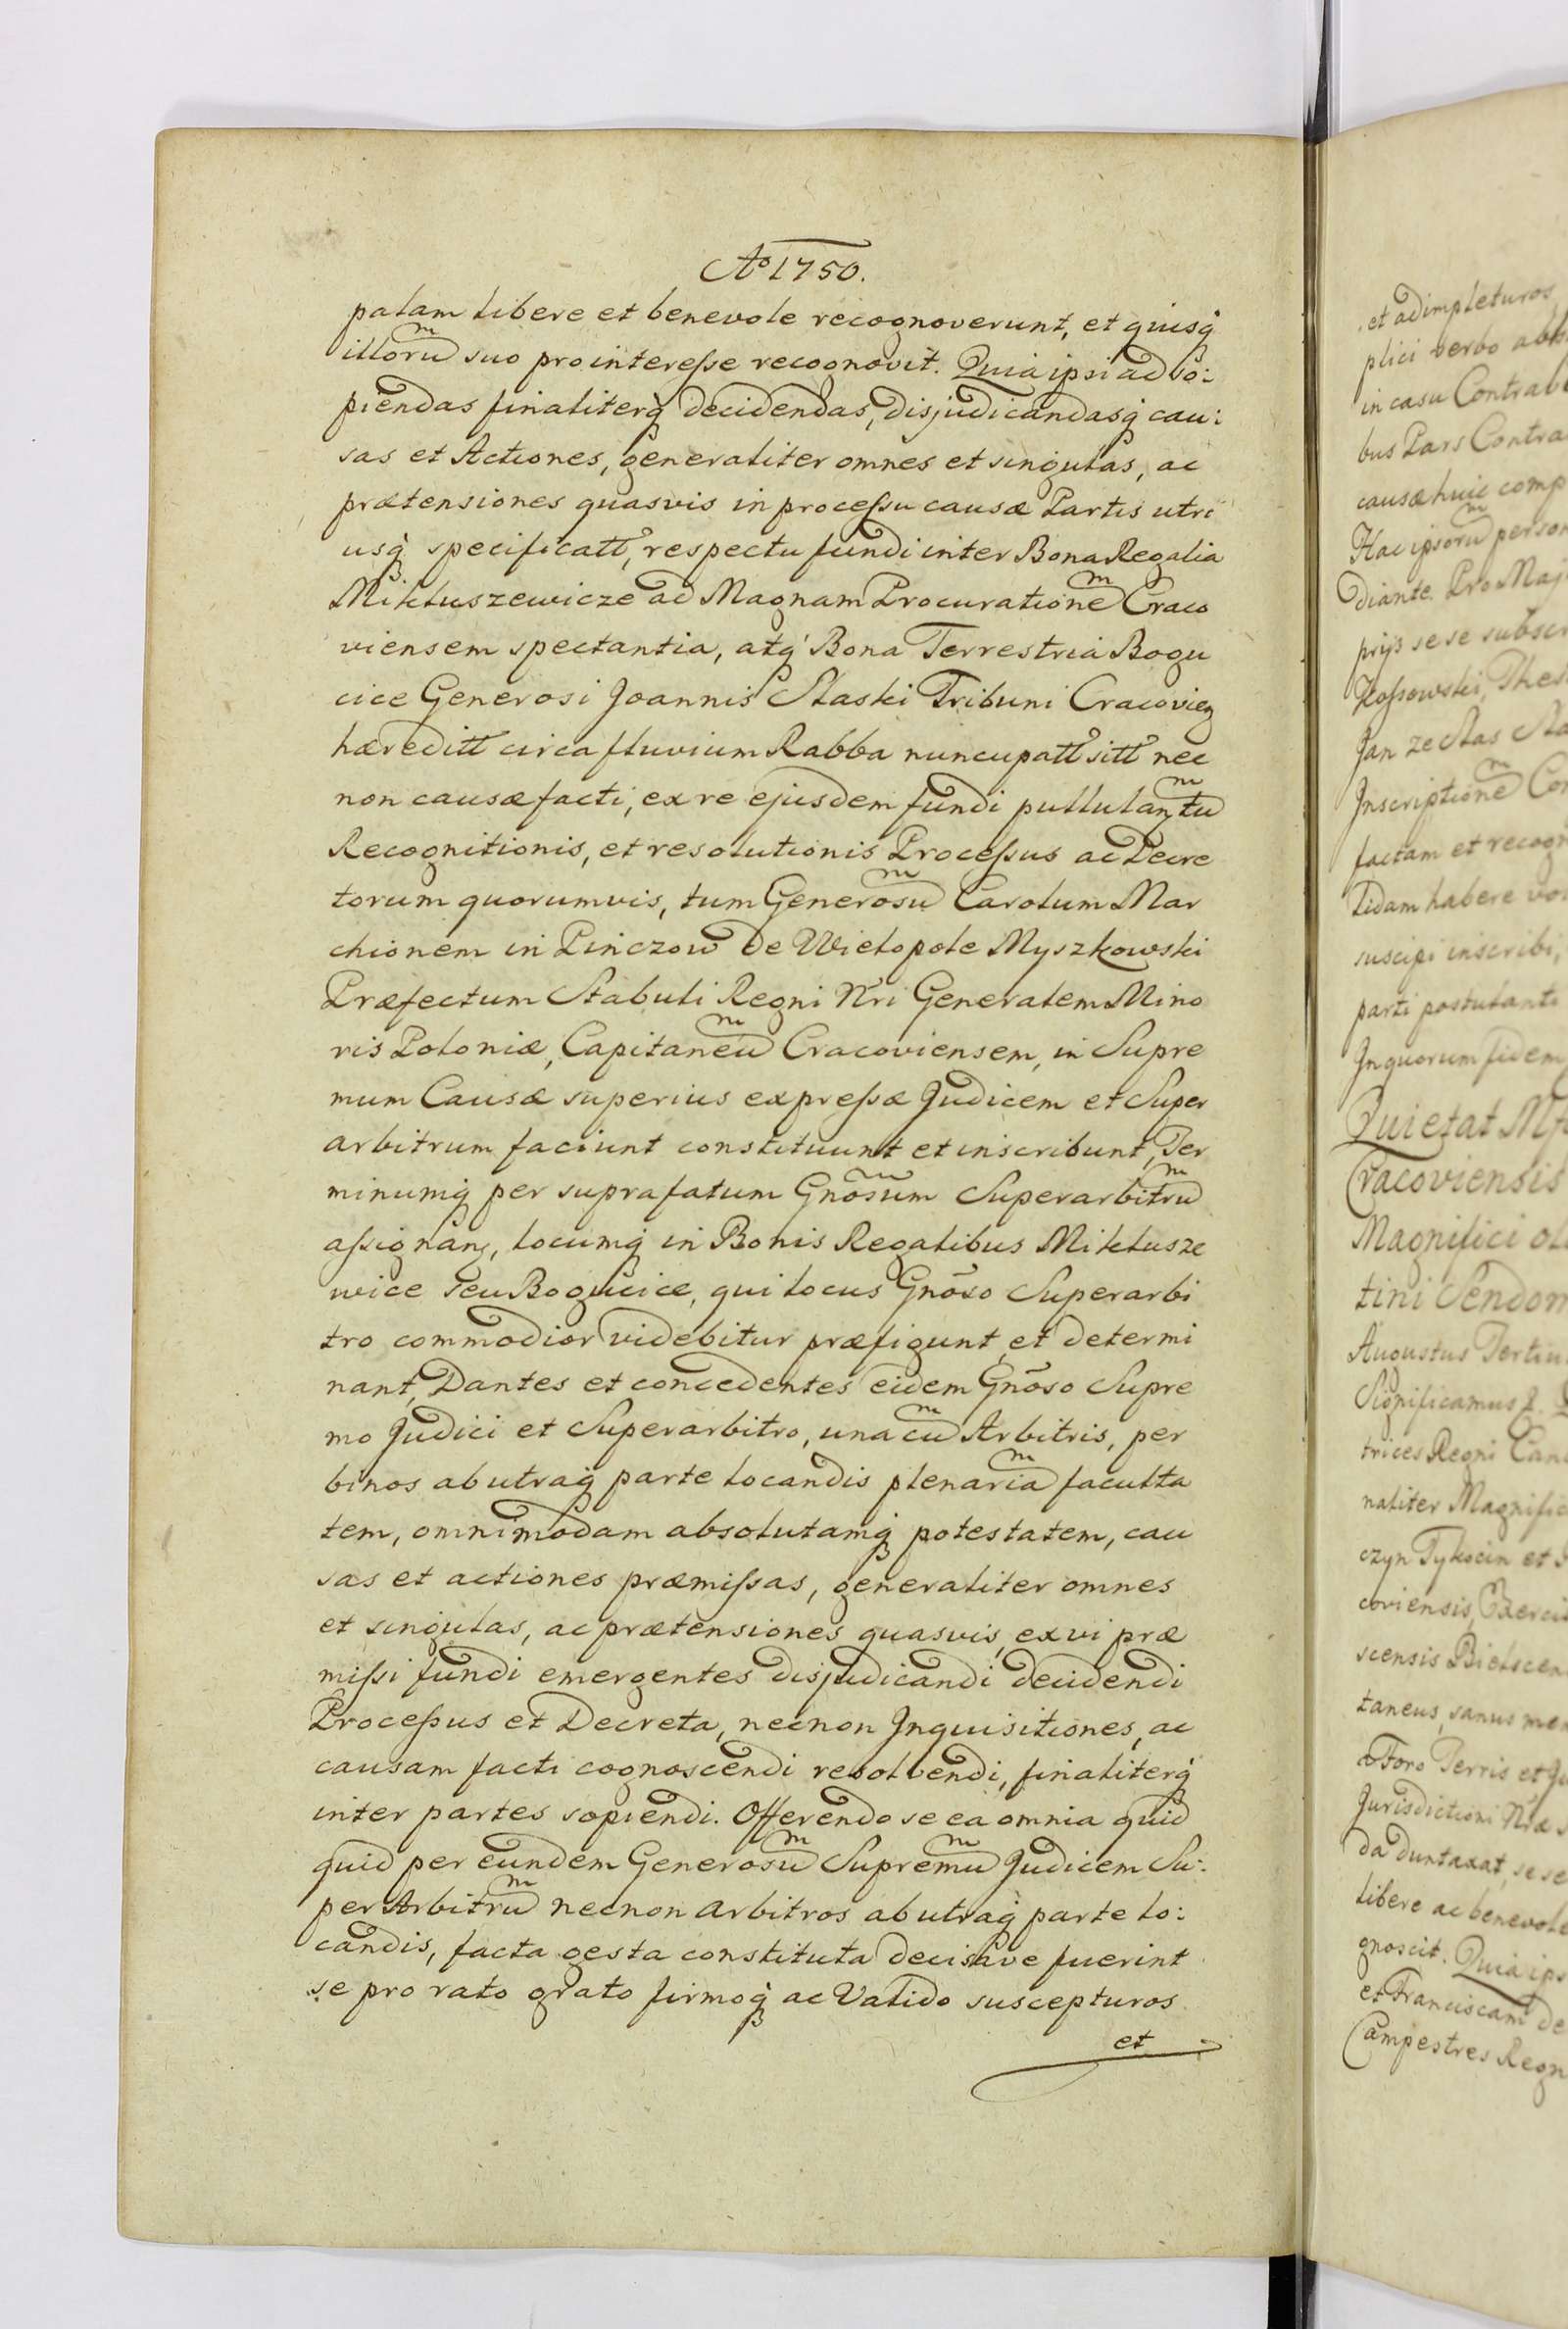 Aº 1750.
palam libere et benevole recognoverunt, et quisq́
illorũ suo pro interesse recognovit. Quia ipsi ad so:
piendas finaliterq́ decidendas, disjudicandasq́ cau:
sas et Actiones, generaliter omnes et singulas, ac
prætensiones quasvis in processu causæ Partis utri
usq́ specificatt, respectu fundi inter Bona Regalia
Mikluszewicze ad Magnam Procurationẽ Craco
viensem spectantia, atq́ Bona Terrestria Bogu
cice Generosi Joannis Staski Tribuni Cracovien
hæreditt circa fluvium Rabba nuncupatt sitt nec
non causæ facti, ex re ejusdem fundi pullulantiũ
Recognitionis, et resolutionis Processus ac Decre
torum quorumvis, tum Generosũ Carolum Mar
chionem in Pinczow de Wielopole Myszkowski
Præfectum Stabuli Regni Nri Generalem Mino
ris Poloniæ, Capitaneũ Cracoviensem, in Supre
mum Causæ superius expressæ Judicem et Super
arbitrum faciunt constituunt et inscribunt, Ter
minumq́ per suprafatum Gnõsum Superarbitrũ
assignan, locumq́ in Bonis Regalibus Miklusze
wice seu Bogucice, qui locus Gnõso Superarbi
tro commodior videbitur præfigunt et determi
nant, Dantes et concedentes eidem Gnõso Supre
mo Judici et Superarbitro, una cũ Arbitris, per
binos ab utraq́ parte locandis plenariã faculta
tem, omnimodam absolutamq́ potestatem, cau
sas et actiones præmissas, generaliter omnes
et singulas, ac prætensiones quasvis, ex vi præ
missi fundi emergentes disjudicandi decidendi
Processus et Decreta, necnon Inquisitiones, ac
causam facti cognoscendi resolvendi, finaliterq́
inter partes sopiendi. Offerendo se ea omnia quid
quid per eundem Generosũ Supremũ Judicem Su:
per Arbitrũ necnon Arbitros ab utraq́ parte lo:
candis, facta gesta constituta decisave fuerint
se pro rato grato firmoq́ ac Valido suscepturos
et
et adimpleturos
plici verbo
in casu
bus Pars Contra
causæ huic comp
Hac ipsorũ person
diante. Pro Maj
prijs sese subscr
Kossowski, Thes
Jan ze Stas Sta
Inscriptionẽ Con
factam et recogn
lidam habere vo
suscipi inscribi,
parti postulanti
In quorum fidem
Quietat
Cracoviensis
Magnifici
tini Sendom
Augustus Tertiu
Significamus
trices Regni Canc
naliter Magnific
czyn Tykocin et
coviensis,
scensis Bielscen
taneus, sanus men
Foro Terris et
Jurisdictioni Nræ
da duntaxat, sese
libere ac benevole
gnoscit. Quia ips
et Franciscam de
Campestres Regn